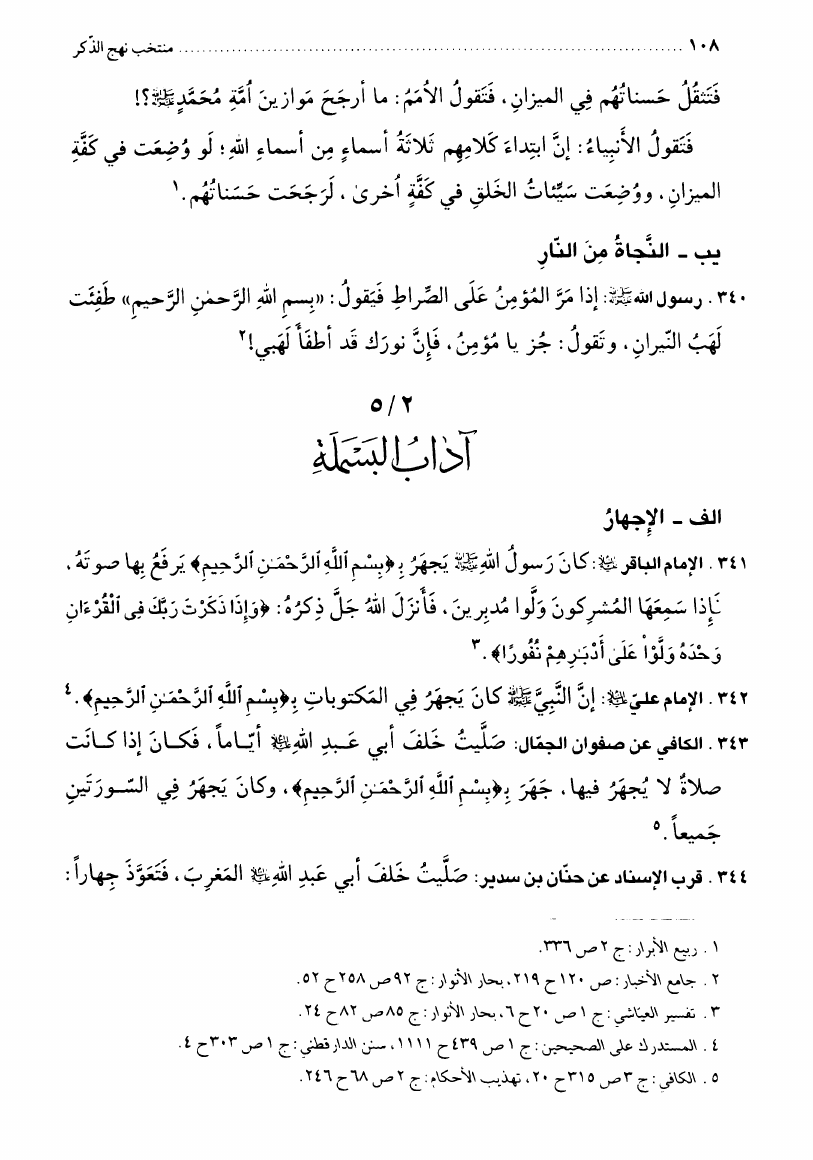 ١٠٨ ........................................ منتخب نهج الذّكر
فَتَثقُلُ حَسناتُهُم فِي الميزانِ، فَتَقولُ الاُمَمُ: ما أرجَحَ مَوازينَ اُمَّةِ مُحَمَّدٍ ﷺ؟!
فَتَقولُ الأَنبِياءُ: إنَّ ابتِداءَ كَلامِهِم ثَلاثَةُ أسماءٍ مِن أسماءِ اللهِ؛ لَو وُضِعَت في كَفَّةِ
الميزانِ، ووُضِعَت سَيِّئاتُ الخَلقِ في كَفَّةٍ اُخرىٰ، لَرَجَحَت حَسَناتُهُم.١
يب ـ النَّجاةُ مِنَ النّارِ
٣٤٠ . رسول الله ﷺ: إذا مَرَّ المُؤمِنُ عَلَى الصِّراطِ فَيَقولُ: «بِسمِ اللهِ الرَّحمٰنِ الرَّحيمِ» طَفِئَت
لَهَبُ النّيرانِ، وتَقولُ: جُز يا مُؤمِنُ، فَإِنَّ نورَك قَد أطفَأَ لَهَبي!٢
٥/٢
آدابُ البَسمَلَةِ
الف ـ الإِجهارُ
٣٤١ . الإمام الباقر ؑ: كانَ رَسولُ اللهِ ﷺ يَجهَرُ بِـ﴿بِسْمِ ٱللَّهِ ٱلرَّحْمَـٰنِ ٱلرَّحِيمِ﴾ يَرفَعُ بِها صوتَهُ،
فَإِذا سَمِعَهَا المُشرِكونَ وَلَّوا مُدبِرينَ، فَأَنزَلَ اللهُ جَلَّ ذِكرُهُ: ﴿وَإِذَا ذَكَرْتَ رَبَّكَ فِى ٱلْقُرْءَانِ
وَحْدَهُ وَلَّوْاْ عَلَىٰ أَدْبَـٰرِهِمْ نُفُورًا﴾.٣
٣٤٢ . الإمام عليّ ؑ: إنَّ النَّبِيَّ ﷺ كانَ يَجهَرُ فِي المَكتوباتِ بِـ﴿بِسْمِ ٱللَّهِ ٱلرَّحْمَـٰنِ ٱلرَّحِيمِ﴾.٤
٣٤٣ . الكافي عن صفوان الجمّال: صَلَّيتُ خَلفَ أبي عَبدِ اللهِ ؑ أيّاماً، فَكانَ إذا كانَت
صلاةٌ لا يُجهَرُ فيها، جَهَرَ بِـ﴿بِسْمِ ٱللَّهِ ٱلرَّحْمَـٰنِ ٱلرَّحِيمِ﴾، وكانَ يَجهَرُ فِي السّورَتَينِ
جَميعاً.٥
٣٤٤ . قرب الإسناد عن حنّان بن سدير: صَلَّيتُ خَلفَ أبي عَبدِ اللهِ ؑ المَغرِبَ، فَتَعَوَّذَ جِهاراً:
١ . ربيع الأبرار: ج ٢ ص ٣٣٦.
٢ . جامع الأخبار: ص ١٢٠ ح ٢١٩، بحار الأنوار: ج ٩٢ ص ٢٥٨ ح ٥٢.
٣ . تفسير العيّاشي: ج ١ ص ٢٠ ح ٦، بحار الأنوار: ج ٨٥ ص ٨٢ ح ٢٤.
٤ . المستدرك على الصحيحين: ج ١ ص ٤٣٩ ح ١١١١، سنن الدارقطني: ج ١ ص ٣٠٣ ح ٤.
٥ . الكافي: ج ٣ ص ٣١٥ ح ٢٠، تهذيب الأحكام: ج ٢ ص ٦٨ ح ٢٤٦.